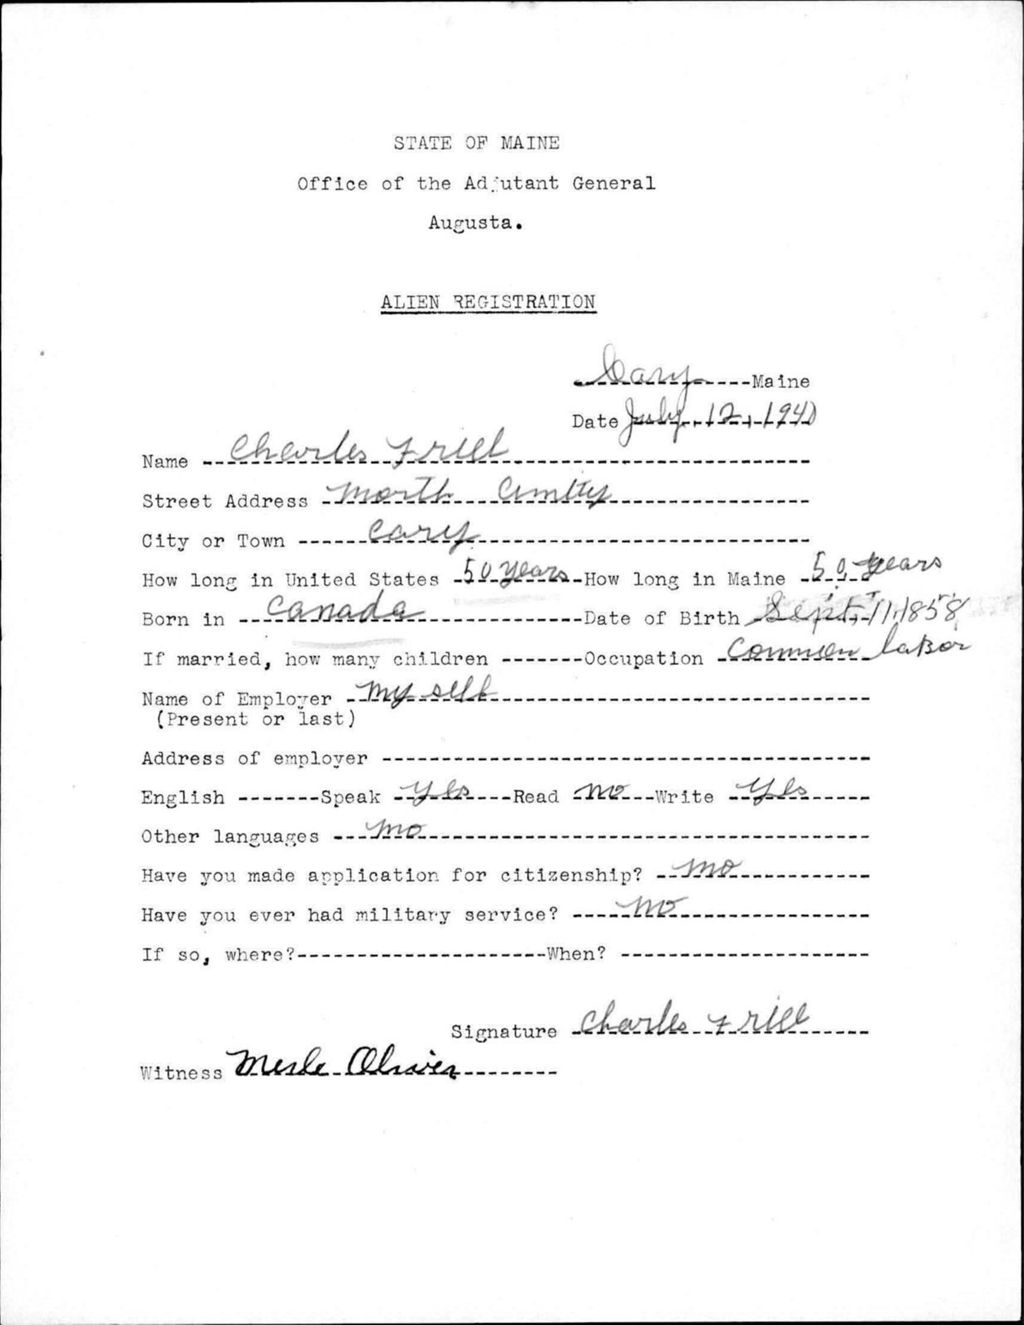 STATE OF MAINE
Office of the Adjutant General
Augusta.
ALIEN REGISTRATION
Cary Maine
Date July 12, 1940
Name Charles Friel
Street Address North Amity
City or Town Cary
How long in United States 50 years How long in Maine 50 years
Born in Canada Date of Birth Sept, 11, 1858
If married, how many children Occupation Common labor
Name of Employer My self
(Present or last)
Address of employer
English Speak Yes Read No Write Yes
Other languages no
Have you made application for citizenship? no
Have you ever had military service? no
If so, where? When?
Signature Charles Friel
Witness Merle Oliver